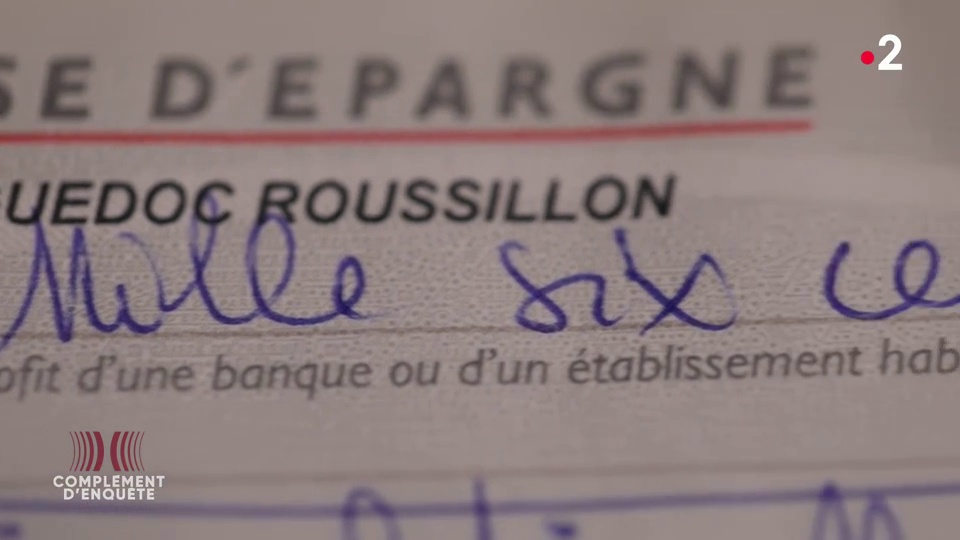 2
SE D'EPARGNE
GUEDOC ROUSSILLON
Mille six ce
ofit d'une banque ou d'un établissement hab
COMPLÉMENT
D'ENQUÊTE